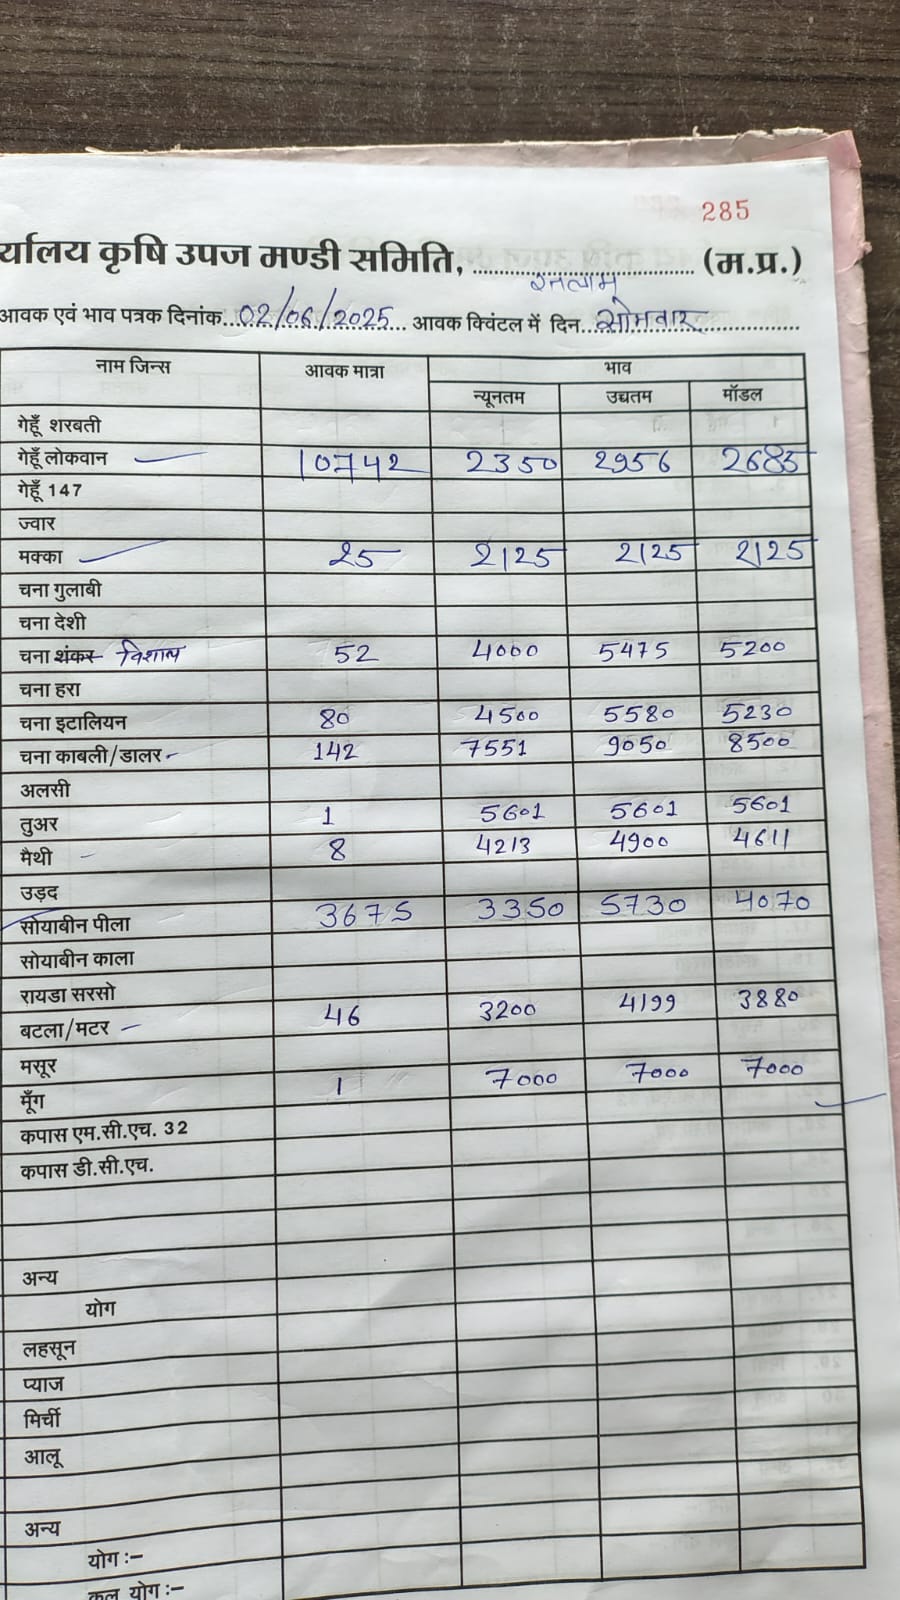 285
र्यालय कृषि उपज मण्डी समिति, रतलाम (म.प्र.)
आवक एवं भाव पत्रक दिनांक 02/06/2025 आवक क्विंटल में दिन सोमवार
नाम जिन्स आवक मात्रा भाव
न्यूनतम उच्चतम मॉडल
गेहूँ शरबती
गेहूँ लोकवान 10742 2350 2956 2685
गेहूँ 147
ज्वार
मक्का 25 2125 2125 2125
चना गुलाबी
चना देशी
चना शंकर विशाल 52 4000 5475 5200
चना हरा
चना इटालियन 80 4500 5580 5230
चना काबली/डालर 142 7551 9050 8500
अलसी
तुअर 1 5601 5601 5601
मैथी 8 4213 4900 4611
उड़द
सोयाबीन पीला 3675 3350 5730 4070
सोयाबीन काला
रायडा सरसो
बटला/मटर 46 3200 4199 3880
मसूर
मूँग 1 7000 7000 7000
कपास एम.सी.एच. 32
कपास डी.सी.एच.
अन्य
योग
लहसून
प्याज
मिर्ची
आलू
अन्य
योग :-
कुल योग :-